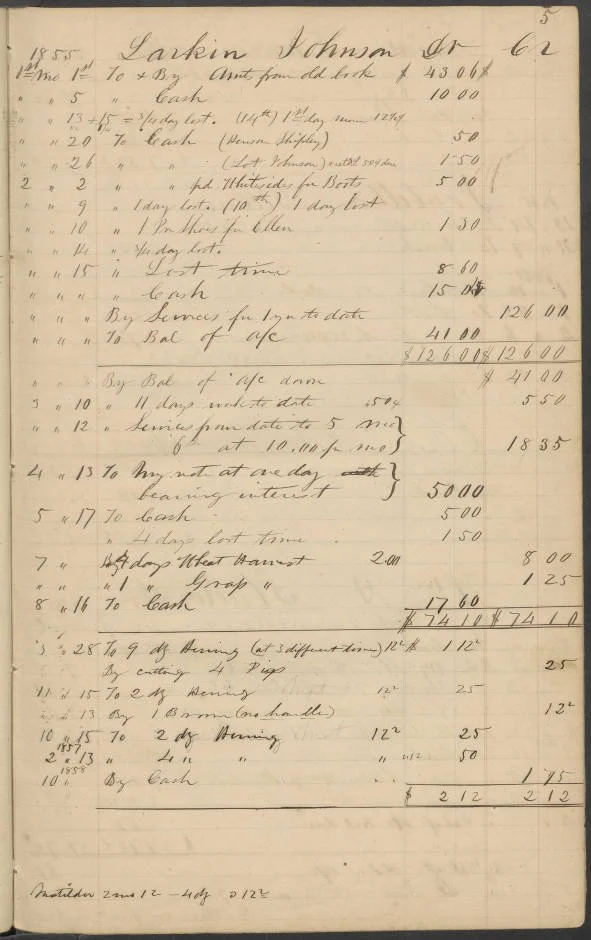 5
1855 Larkin Johnson Dr Cr
1st mo 1st To & By Amt from old book $ 43 00 $
" " 5 " Cash 10 00
" " 13 + 15 = 3/4 day lost. (14th) 1st day
" " 20 To Cash (Henson Shipley) 50
" " 26 " " (Lot Johnson) 1 50
2 " 2 " " pd Whitesides for Boots 5 00
" " 9 " 1 day lost. (10th) 1 day lost
" " 10 " 1 Pr Shoes for Ellen 1 30
" " 14 " 3/4 day lost.
" " 15 " Lost time 8 60
" " " " Cash 15
" " " By Services for 1 yr to date 126 00
" " " To Bal of a/c 41 00
$ 126 00 $ 126 00
" " " By Bal of a/c down $ 41 00
3 " 10 " 11 days work to date .50¢ 5 50
" " 12 " Services from date to 5 mo
6th at 10.00 pr mo 18 35
4 " 13 To my not at one day
bearing interest 50 00
5 " 17 To Cash 5 00
" 4 days lost time 1 50
7 " By 4 days Wheat Harvest 2.00 8 00
" " " 1 " Grass " 1 25
8 " 16 To Cash 17 60
$ 74 10 $ 74 10
3 " 28 To 9 dz Herring (at 3 different times) 12½ $ 1 12½
By cutting 4 Pigs 25
11 " 15 To 2 dz Herring 12½ 25
" " 13 By 1 Broom (no handle) 12½
10 " 15 To 2 dz Herring 12½ 25
1857
2 " 13 " 4 " " " 12½ 50
1858
10 " By Cash 1 75
$ 2 12 2 12
Matilda 2 mo 12 – 4 dz 12½